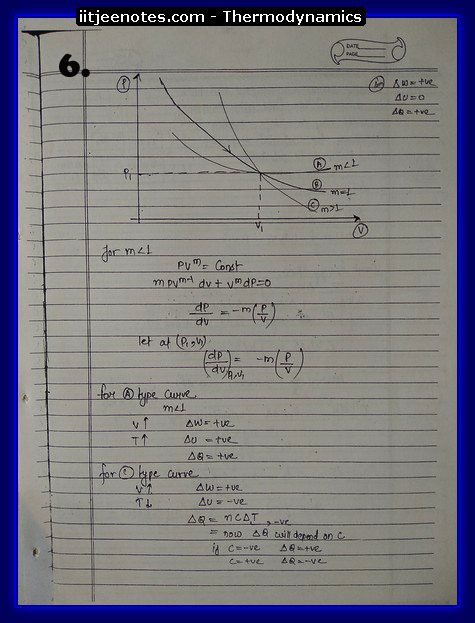 iitjeenotes.com - Thermodynamics
DATE
PAGE
6.
P
B ΔW=+ve
ΔU=0
ΔQ=+ve
P₁
A m<1
B m=1
C m>1
V₁
V
for m<1
PVᵐ = Const
mPVᵐ⁻¹ dv + Vᵐ dP=0
dP/dV = -m(P/V)
let at (P₁,V₁)
(dP/dV)P₁,V₁ = -m(P/V)
for A type curve
m<1
V↑ ΔW=+ve
T↑ ΔU=+ve
ΔQ=+ve
for C type curve
V↑ ΔW=+ve
T↓ ΔU=-ve
ΔQ= nCΔT, -ve
= now ΔQ will depend on C
if C=-ve ΔQ=+ve
C=+ve ΔQ=-ve